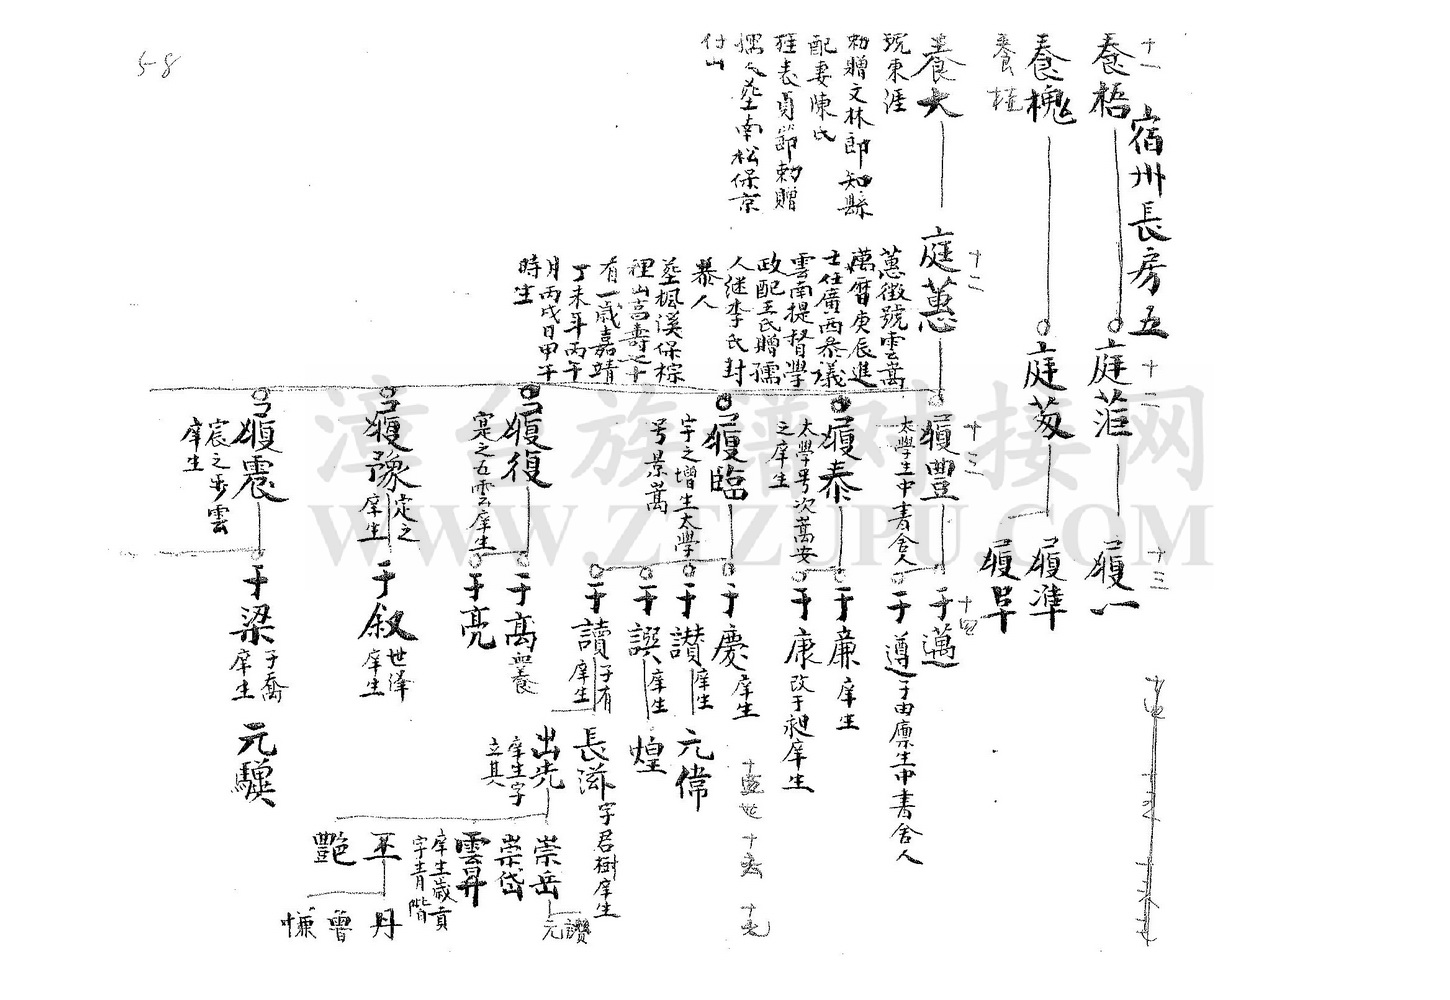 58
宿州長房五
十一
養梧
養槐
養桂
養大
號東涯
勅贈文林郎知縣
配妻陳氏
旌表貞節勅贈
孺人葬南松保京
仔山
十二
庭蕙
蕙徵號雲嵩
萬曆庚辰進
士任廣西叅議
雲南提督學
政配王氏贈孺
人継李氏封
恭人
葬楓溪保棕
裡山高壽七十
有一歲嘉靖
丁未年丙午
月丙戌日甲午
時生
十二
庭茳
庭芴
十三
履豐
太學生中書舍人
履泰
太學号次嵩安
之庠生
履臨
字之增生太學
号景嵩
履復
寔之五雲庠生
履豫
定之
庠生
履震
宸之步雲
庠生
十三
履一
履準
履旱
十四
于邁
于遵
于由廪生中書舍人
于廉
庠生
于康
改于昶庠生
于慶
庠生
于讃
庠生
于譔
庠生
于讀
子有
庠生
于高
于亮
于叙
世澤
庠生
于梁
子喬
庠生
元偉
煌
長滋
字君樹庠生
出先
庠生字
立其
元騻
崇岳
崇岱
雲昇
庠生歲貢
字青階
丕
艷
元讚
丹
曾
慊
漳台族譜对接网
WWW.ZTZUPU.COM